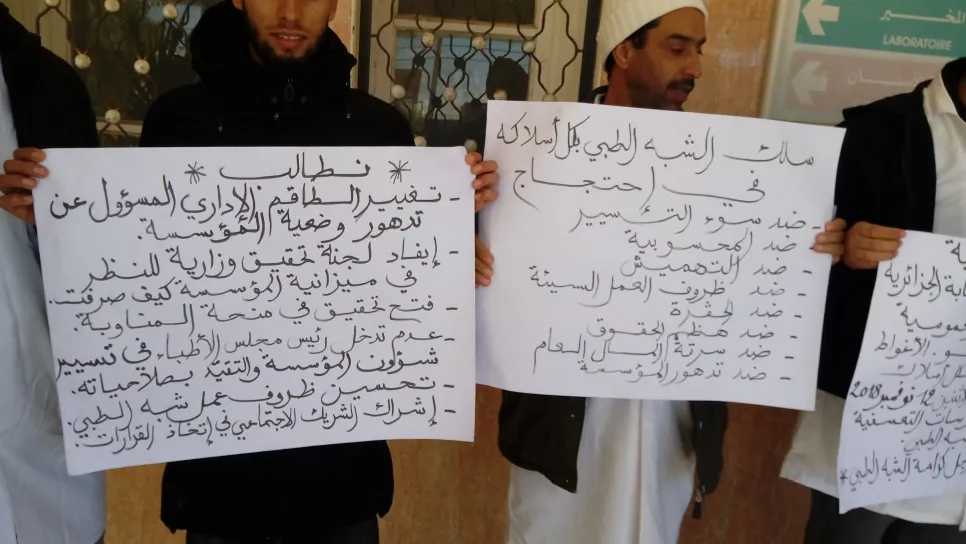 * نطالب *
- تغيير الطاقم الإداري المسؤول عن
تدهور وضعية المؤسسة.
- إيفاد لجنة تحقيق وزارية للنظر
في ميزانية المؤسسة كيف صرفت.
- فتح تحقيق في منحة المناوبة.
- عدم تدخل رئيس مجلس الأطباء في تسيير
شؤون المؤسسة والتقيّد بصلاحياته.
- تحسين ظروف عمل شبه الطبي.
- إشراك الشريك الاجتماعي في إتخاذ القرارات.
سلك الشبه الطبي بكل أسلاكه
في إحتجاج
- ضد سوء التسيير
- ضد المحسوبية
- ضد التهميش
- ضد ظروف العمل السيئة
- ضد الحقرة
- ضد هظم الحقوق
- ضد سرقة المال العام
- ضد تدهور المؤسسة
المخبر
LABORATOIRE
الجزائرية
عمومية
الأغواط
12 نوفمبر 2018
التعسفية
الطبي.
كرامة الشبه الطبي *